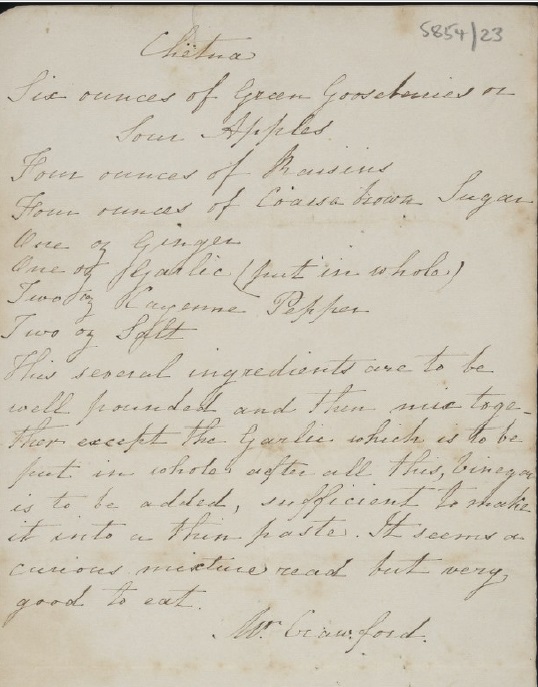 5854/23
Chetna
Six ounces of Green Gooseberries or
Sour Apples
Four ounces of Raisins
Four ounces of Coarse brown Sugar
One oz Ginger
One oz Garlic (put in whole)
Two oz Kayenne Pepper
Two oz Salt
This several ingredients are to be
well pounded and then mix toge-
ther except the Garlic which is to be
put in whole after all this, Vinegar
is to be added, sufficient to make
it into a thin paste. It seems a
curious mixture read but very
good to eat.
Mr Crawford.